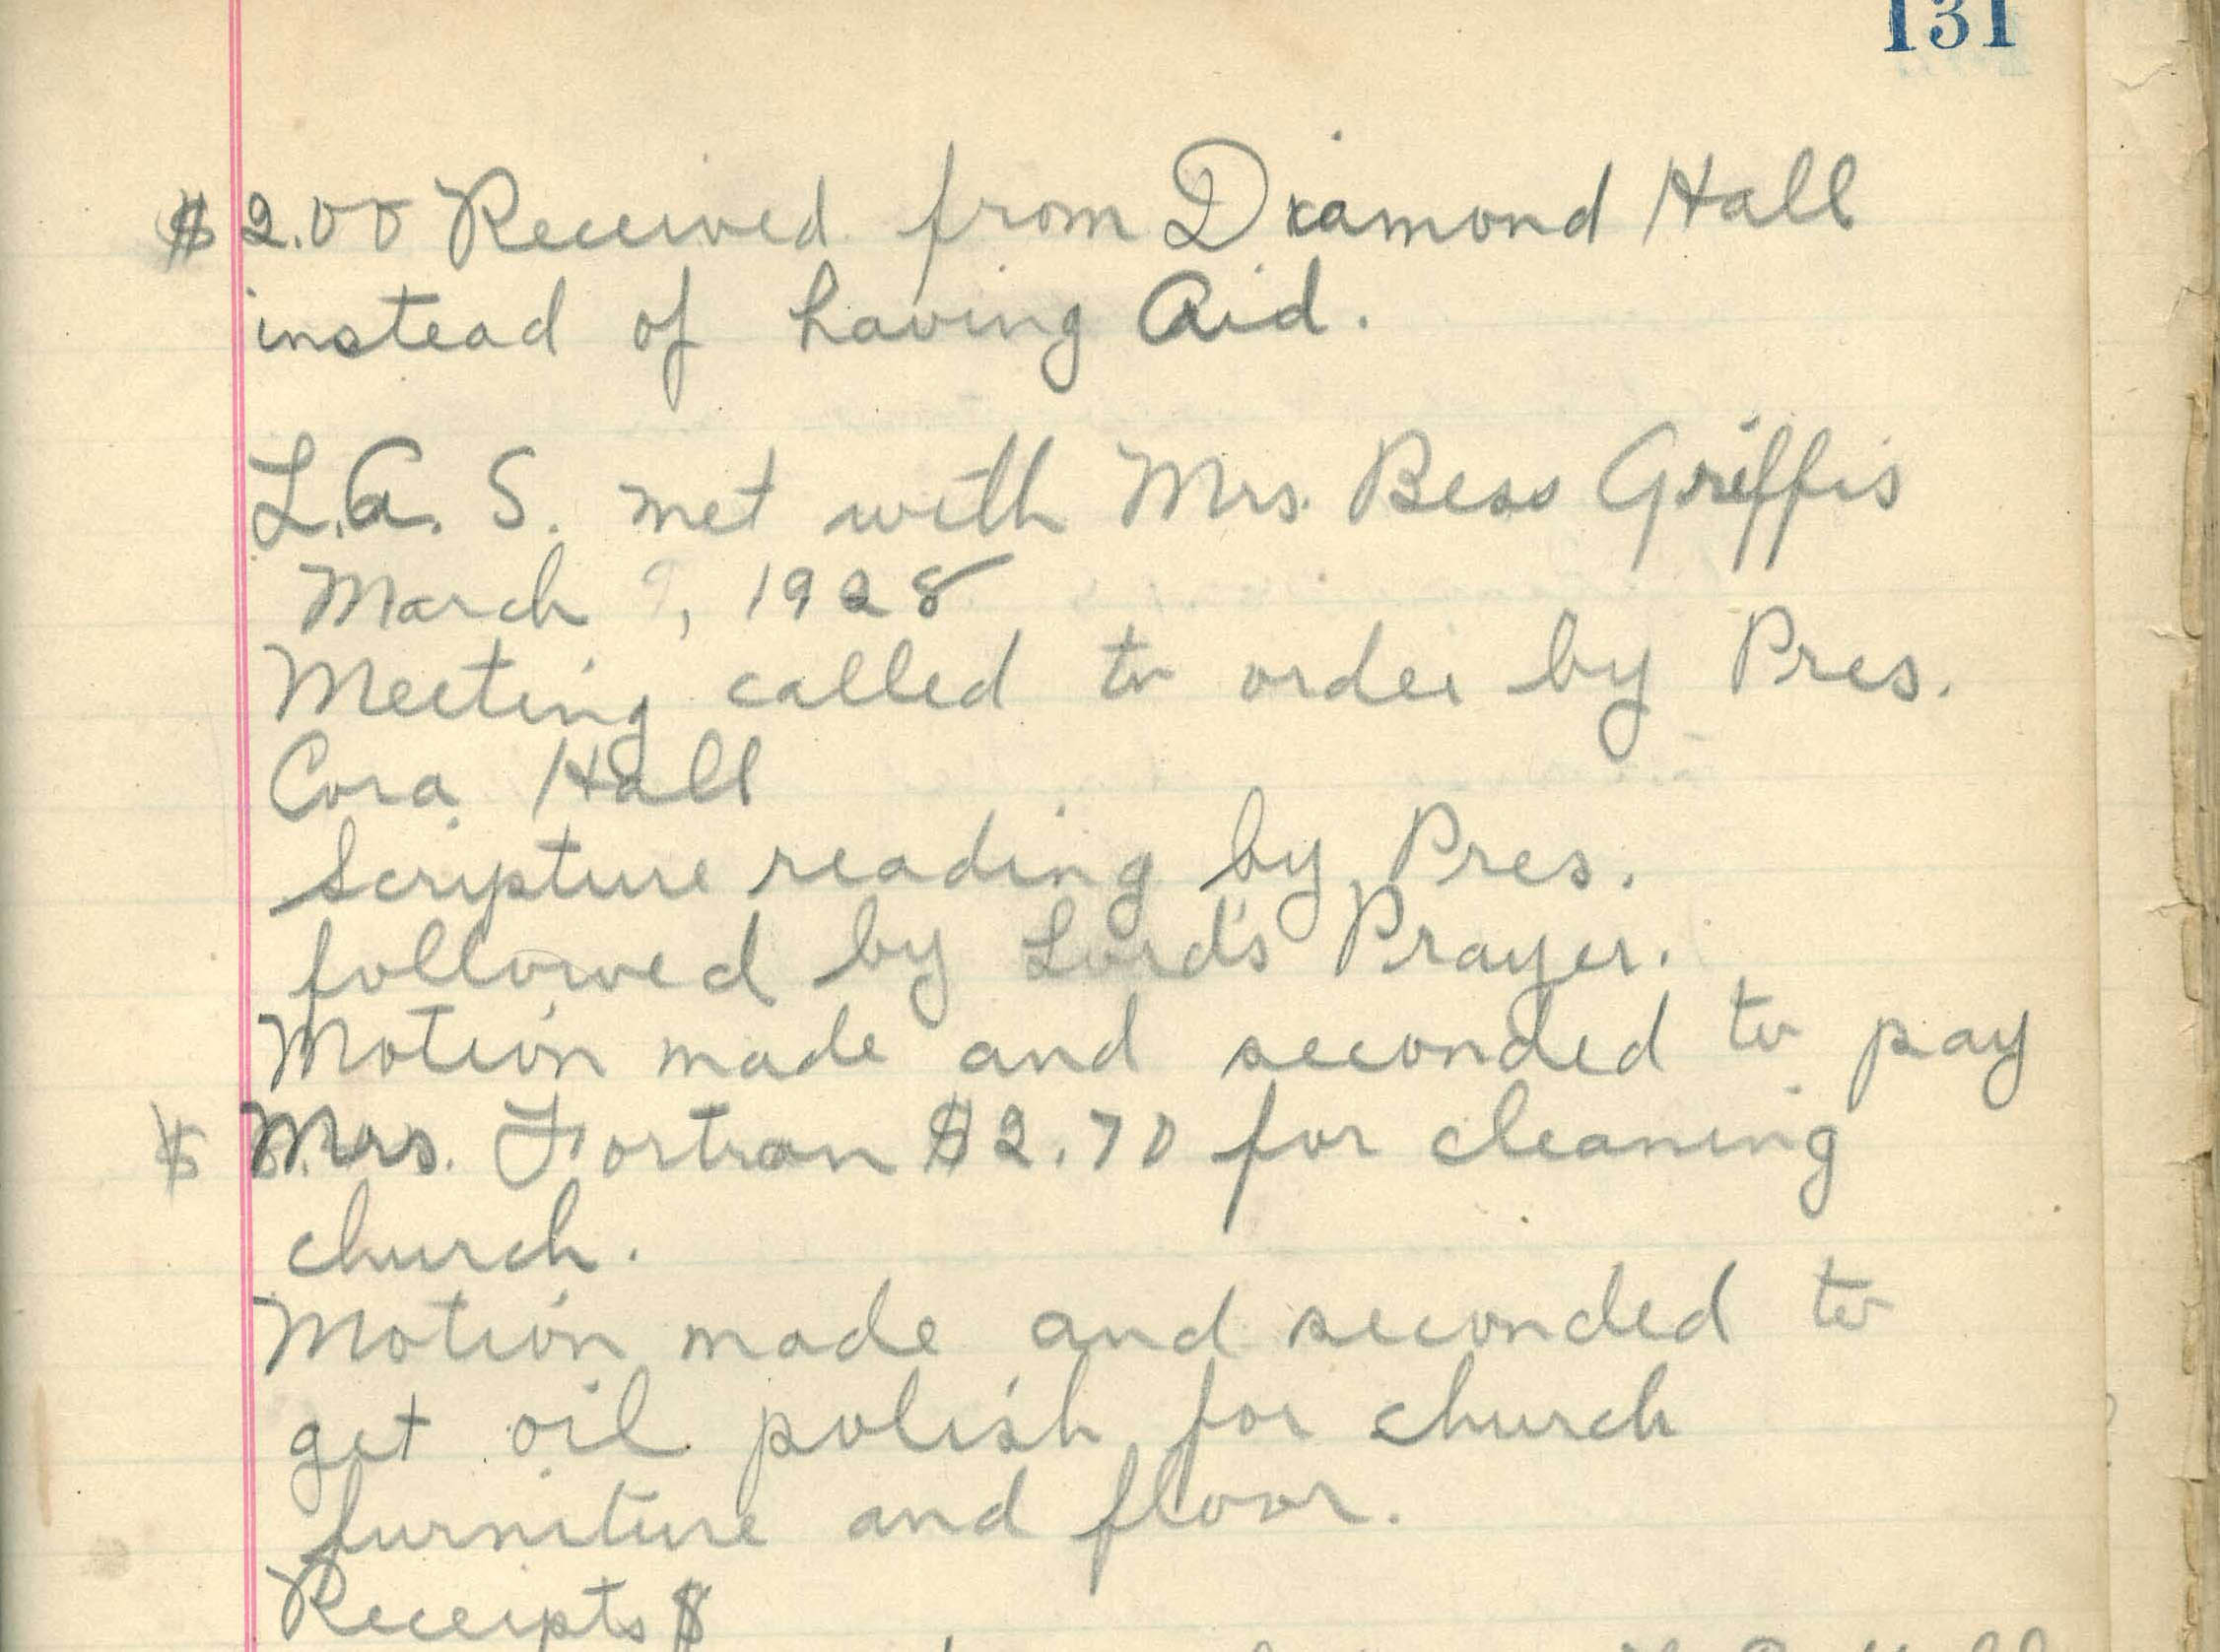 131
$2.00 Received from Diamond Hall
instead of having Aid.
L.A. S. met with Mrs. Bess Griffis
March 9, 1928
Meeting called to order by Pres.
Cora Hall
Scripture reading by Pres.
followed by Lord's Prayer.
Motion made and seconded to pay
$ Mrs. Fortran $2.70 for cleaning
church.
Motion made and seconded to
get oil polish for church
furniture and floor.
Receipts $